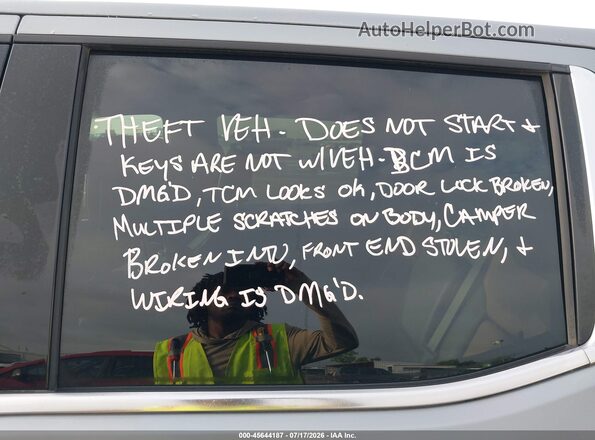 AutoHelperBot.com
THEFT VEH - DOES NOT START &
KEYS ARE NOT W/VEH - BCM IS
DMG'D, TCM LOOKS OK, DOOR LOCK BROKEN,
MULTIPLE SCRATCHES ON BODY, CAMPER
BROKEN INTO, FRONT END STOLEN, &
WIRING IS DMG'D.
000-45644187 - 07/17/2026 - IAA Inc.